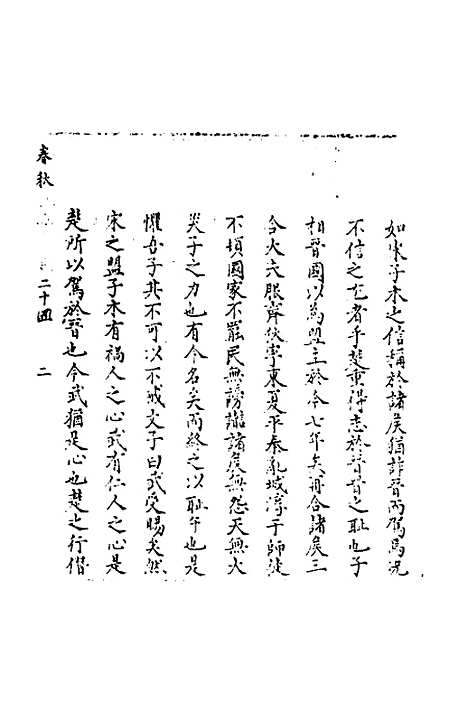 如朱子木之信稱於諸侯猶詐晉而駕焉況
不信之尤者乎楚重得志於晉晉之耻也子
相晉國以爲盟主於今七年矣再合諸侯三
合大夫服齊狄寧東夏平秦亂城淳于師徒
不頓國家不罷民無謗讟諸侯無怨天無大
災子之力也有令名矣而終之以耻午也是
懼吾子其不可以不戒文子曰武受賜矣然
宋之盟子木有禍人之心武有仁人之心是
楚所以駕於晉也今武猶是心也楚之行僭
春秋 二十四 二